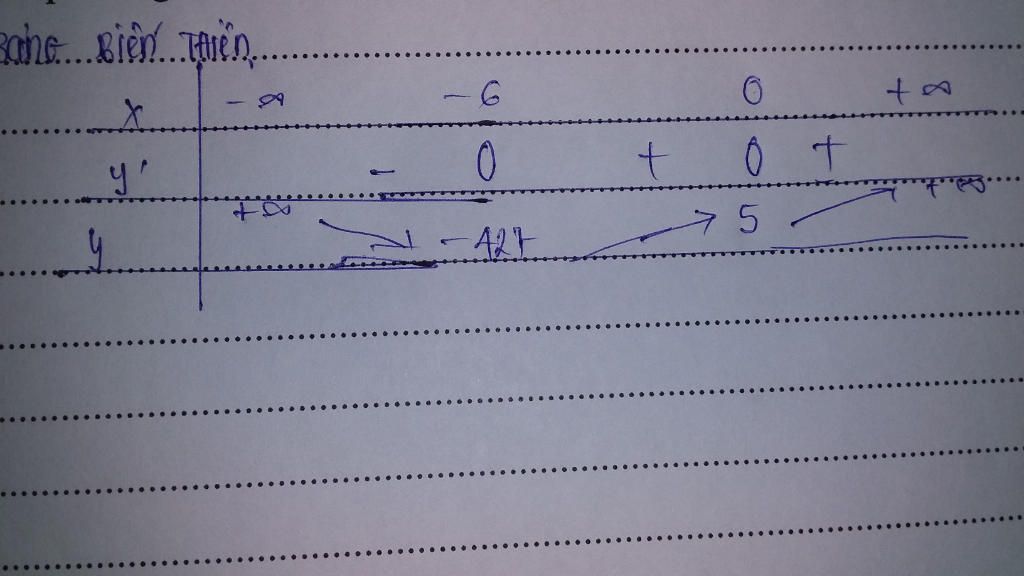 BảNG BIếN THIêN
x -∞ -6 0 +∞
y' - 0 + 0 +
y +∞ -427 5 +∞